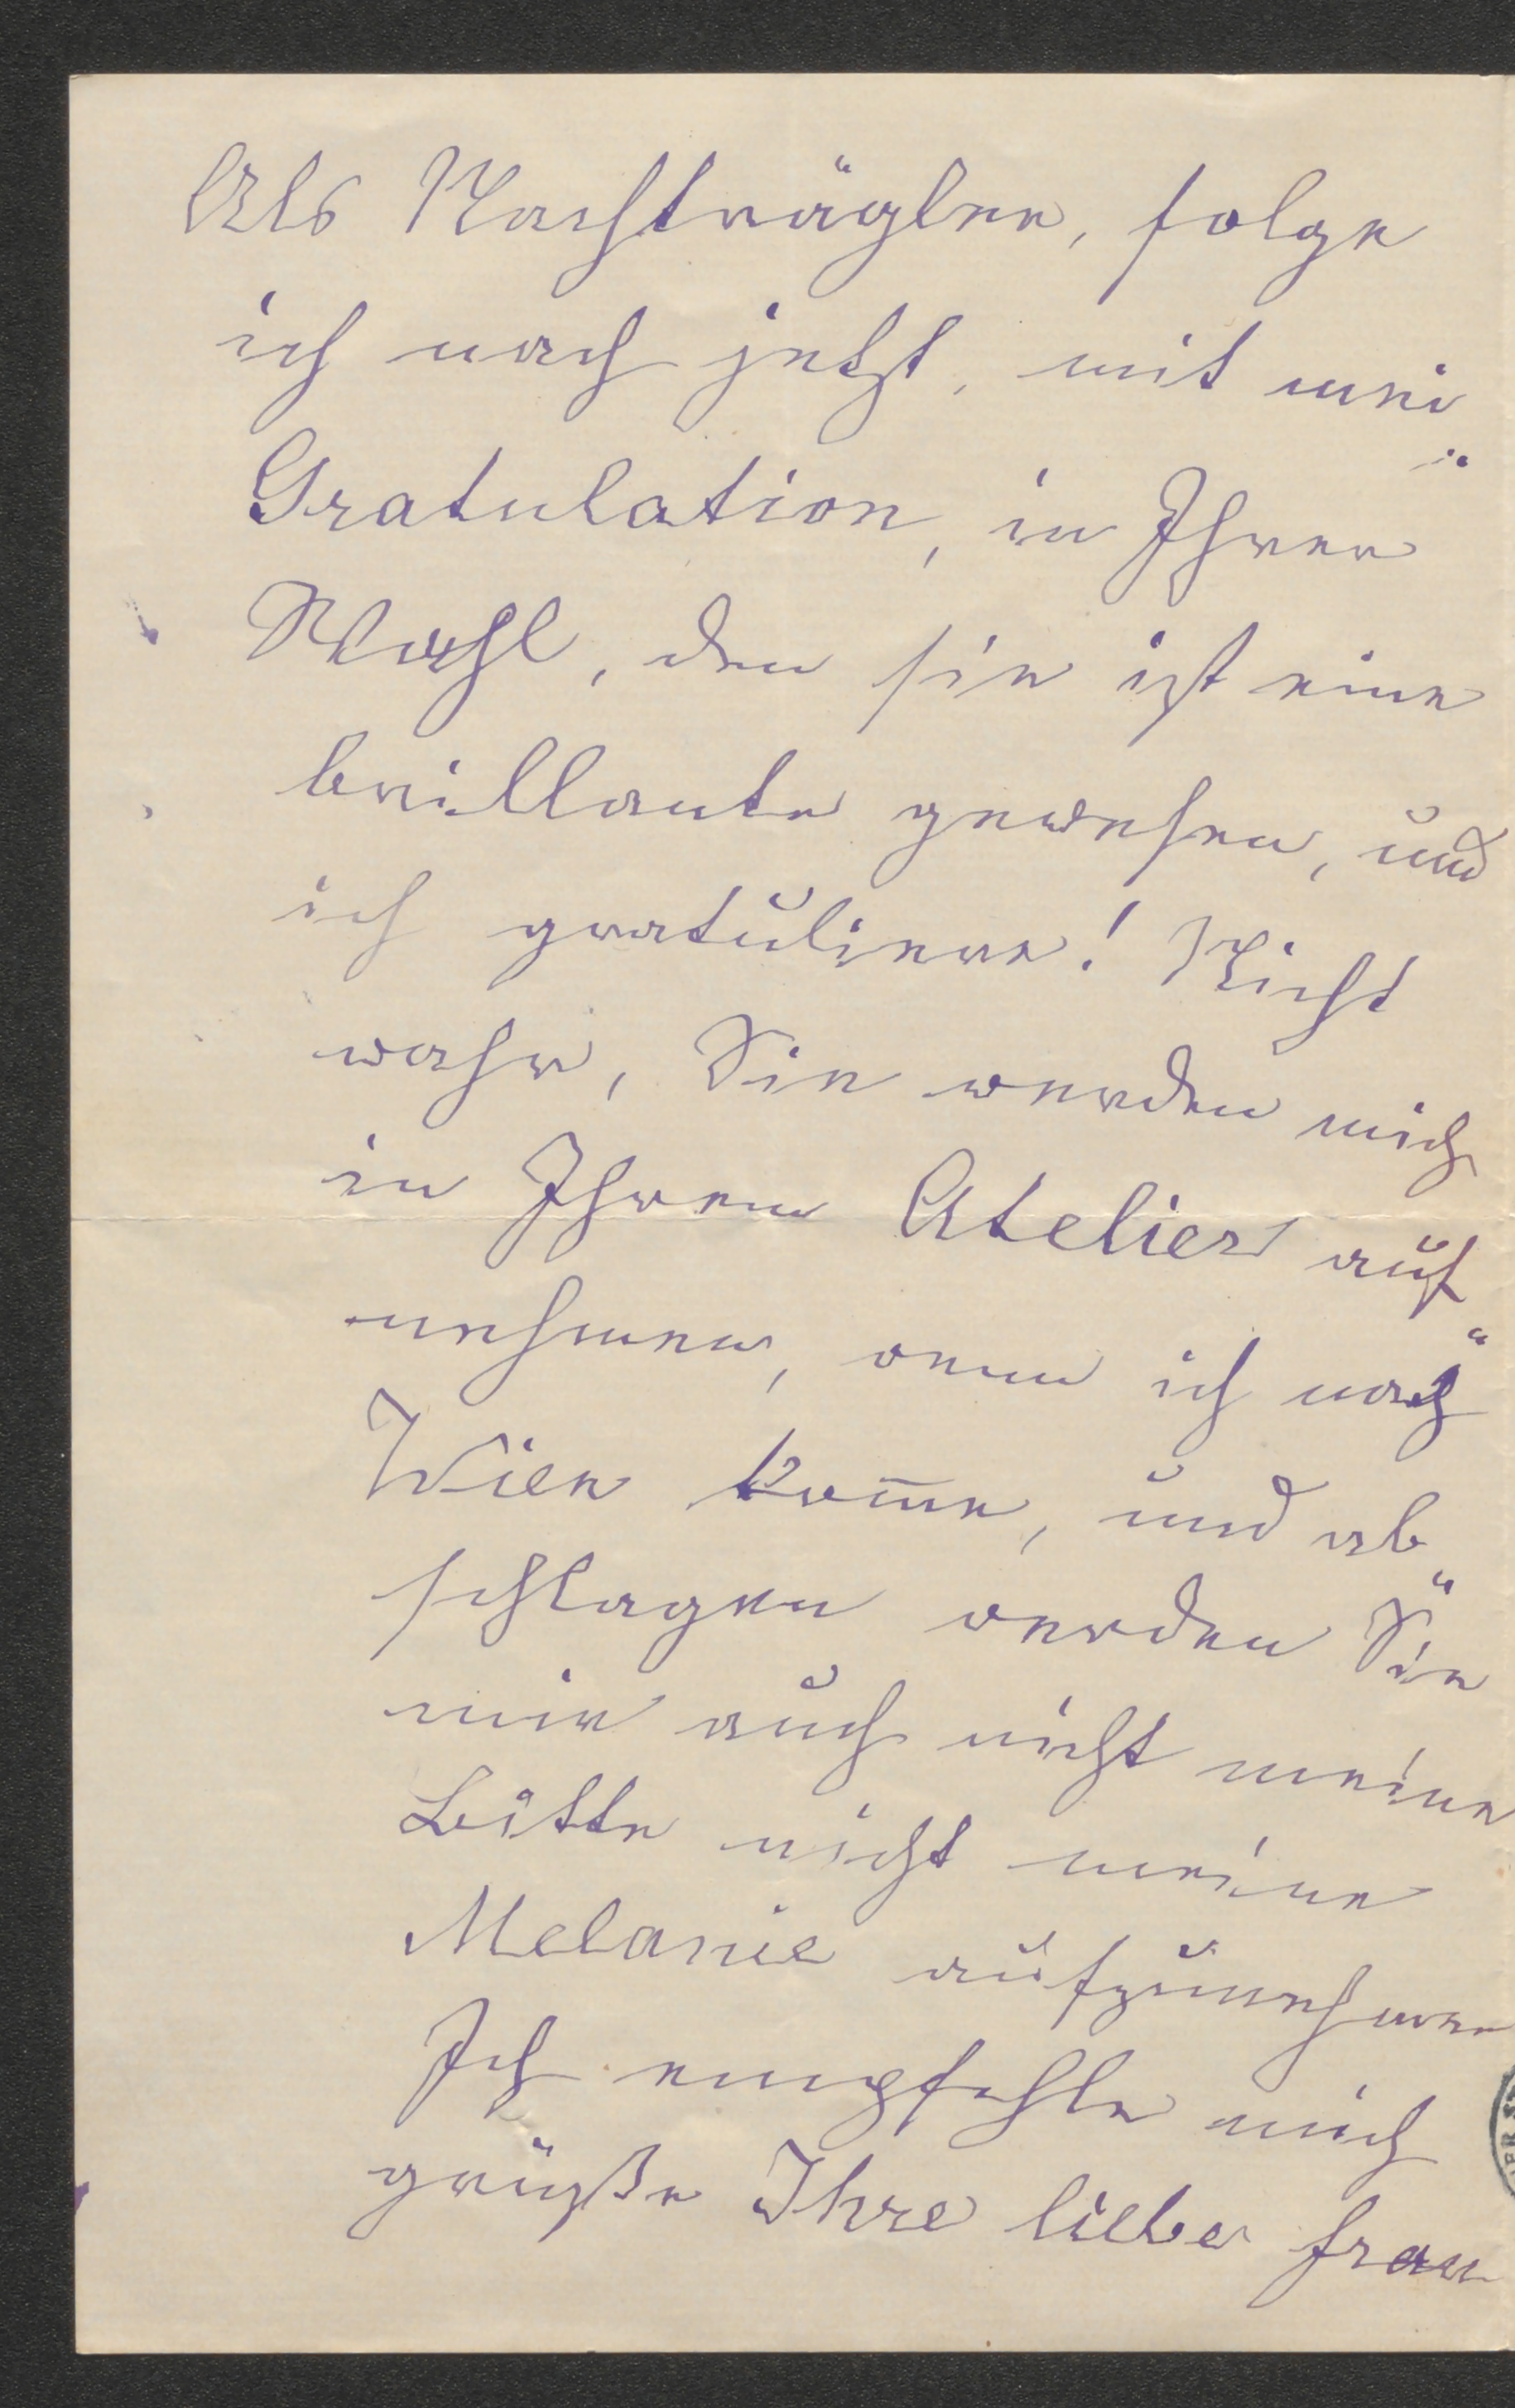 Als Nachträgler, folge
ich noch jetzt, mit mei„
Gratulation, in Ihrer
Wahl, den sie ist eine
brillante gewesen, und
ich gratuliere! Nicht
wahr, Sie werden mich
in Ihrem Atelier auf„
nehmen, wenn ich nach
Wien kom̅e, und ab„
schlagen werden Sie
mir auch nicht meine
Bitte nicht meine
Melanie aufzunehmen
Ich empfehle mich
grüße Ihre liebe Frau